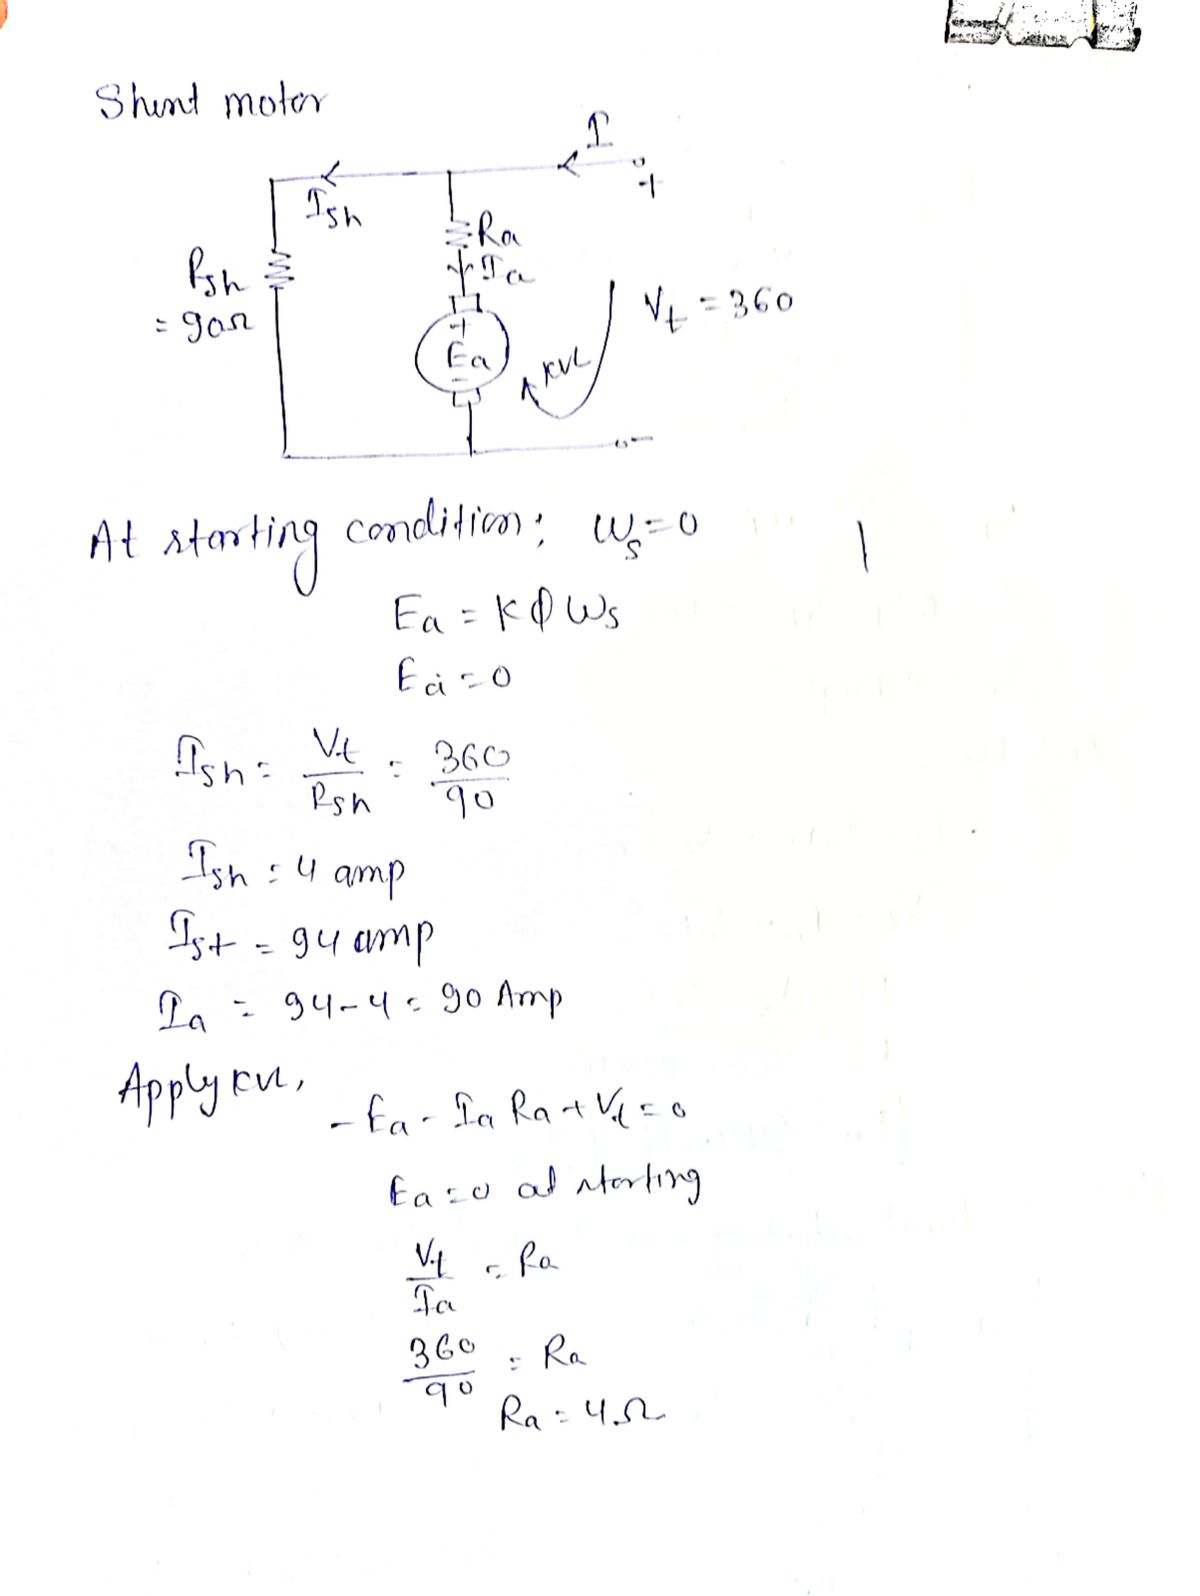 Shunt motor
I
+
Ish
Ra
Rsh
Ia
= 90Ω
Vt = 360
+
Ea
-
KVL
-
At starting condition; Ws=0
Ea = KΦWs
Ea=0
Ish = Vt/Rsh = 360/90
Ish = 4 amp
Ist = 94 amp
Ia = 94-4 = 90 Amp
Apply KVL,
-Ea - Ia Ra + Vt = 0
Ea=0 at starting
Vt/Ia = Ra
360/90 = Ra
Ra = 4Ω